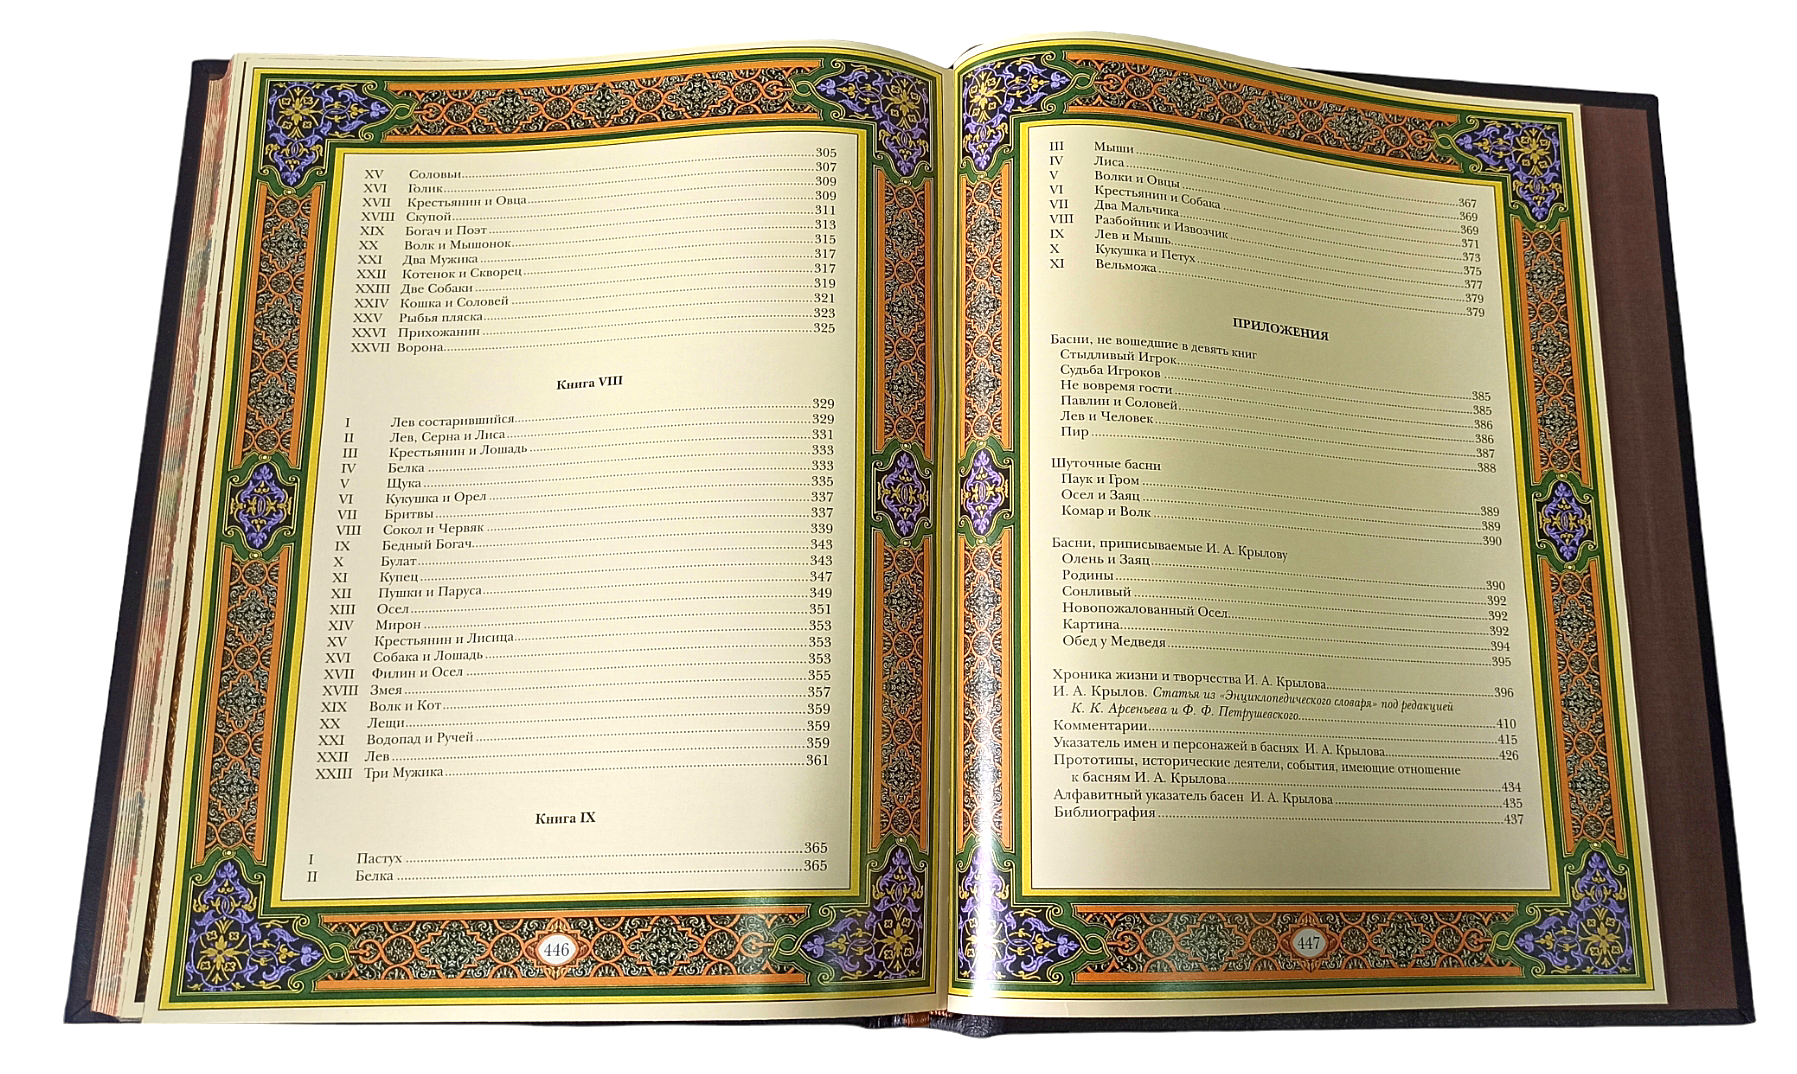 XV Соловьи 305
XVI Голик 307
XVII Крестьянин и Овца 309
XVIII Скупой 309
XIX Богач и Поэт 311
XX Волк и Мышонок 313
XXI Два Мужика 315
XXII Котенок и Скворец 317
XXIII Две Собаки 317
XXIV Кошка и Соловей 319
XXV Рыбья пляска 321
XXVI Прихожанин 323
XXVII Ворона 325
Книга VIII
I Лев состарившийся 329
II Лев, Серна и Лиса 329
III Крестьянин и Лошадь 331
IV Белка 333
V Щука 333
VI Кукушка и Орел 335
VII Бритвы 337
VIII Сокол и Червяк 337
IX Бедный Богач 339
X Булат 343
XI Купец 343
XII Пушки и Паруса 347
XIII Осел 349
XIV Мирон 351
XV Крестьянин и Лисица 353
XVI Собака и Лошадь 353
XVII Филин и Осел 353
XVIII Змея 355
XIX Волк и Кот 357
XX Лещи 359
XXI Водопад и Ручей 359
XXII Лев 359
XXIII Три Мужика 361
Книга IX
I Пастух 365
II Белка 365
446
III Мыши 367
IV Лиса 369
V Волки и Овцы 369
VI Крестьянин и Собака 371
VII Два Мальчика 373
VIII Разбойник и Извозчик 375
IX Лев и Мышь 377
X Кукушка и Петух 379
XI Вельможа 379
ПРИЛОЖЕНИЯ
Басни, не вошедшие в девять книг
Стыдливый Игрок 385
Судьба Игроков 385
Не вовремя гости 386
Павлин и Соловей 386
Лев и Человек 387
Пир 388
Шуточные басни
Паук и Гром 389
Осел и Заяц 389
Комар и Волк 390
Басни, приписываемые И. А. Крылову
Олень и Заяц 390
Родины 392
Сонливый 392
Новопожалованный Осел 392
Картина 394
Обед у Медведя 395
Хроника жизни и творчества И. А. Крылова 396
И. А. Крылов. Статья из «Энциклопедического словаря» под редакцией
К. К. Арсеньева и Ф. Ф. Петрушевского 410
Комментарии 415
Указатель имен и персонажей в баснях И. А. Крылова 426
Прототипы, исторические деятели, события, имеющие отношение
к басням И. А. Крылова 434
Алфавитный указатель басен И. А. Крылова 435
Библиография 437
447